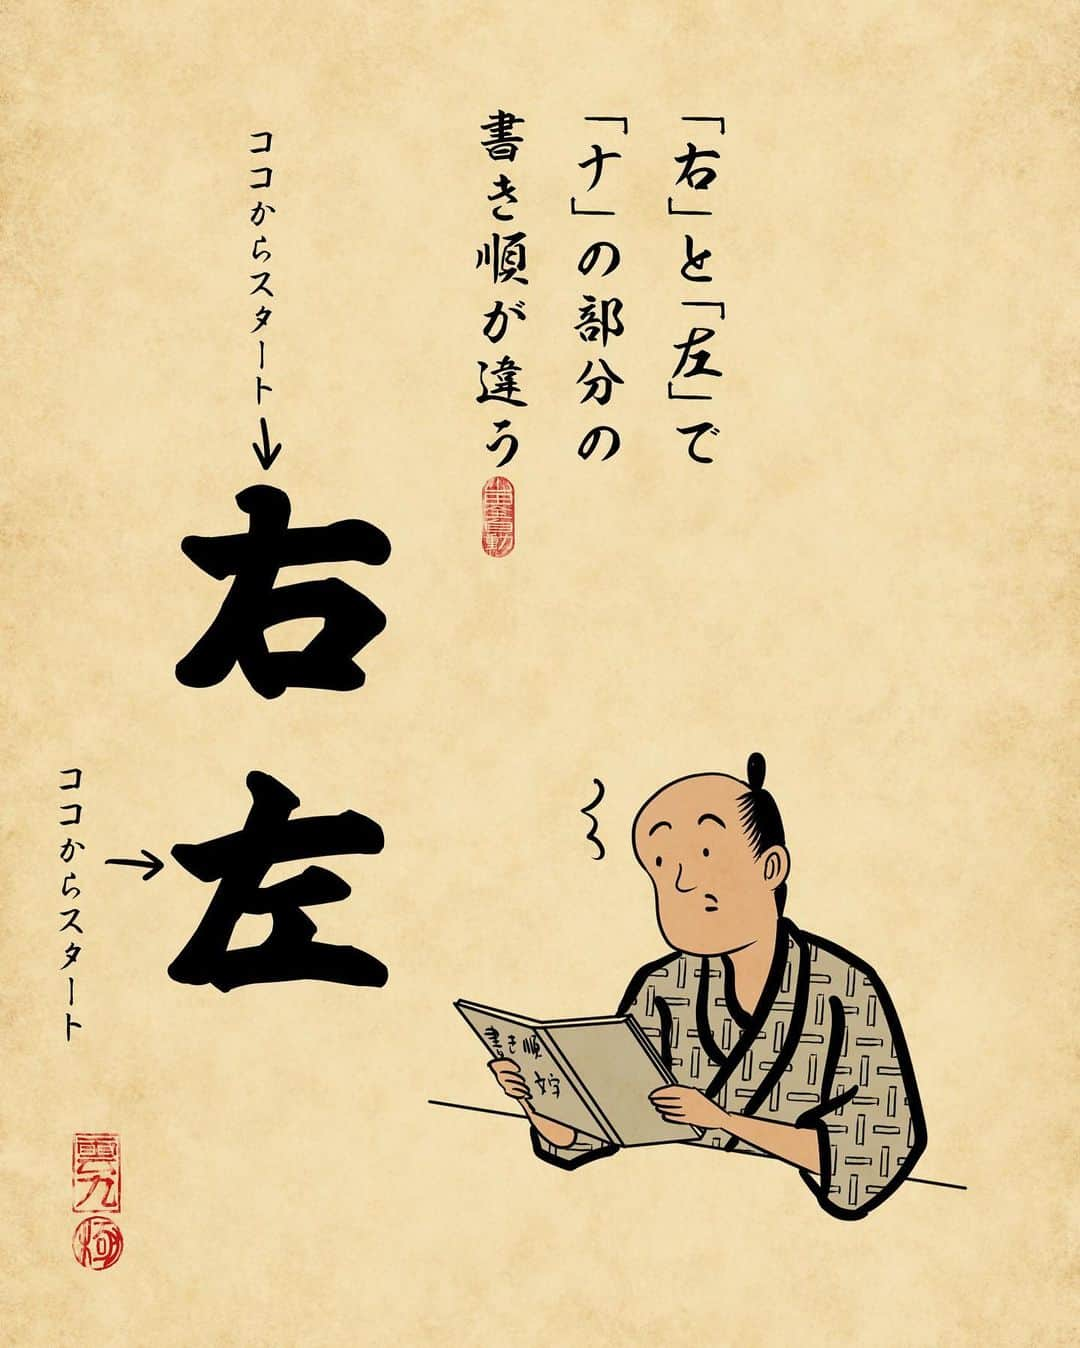 「右」と「左」で
「ナ」の部分の
書き順が違う
ココからスタート
右
ココからスタート
左
書き順
文字